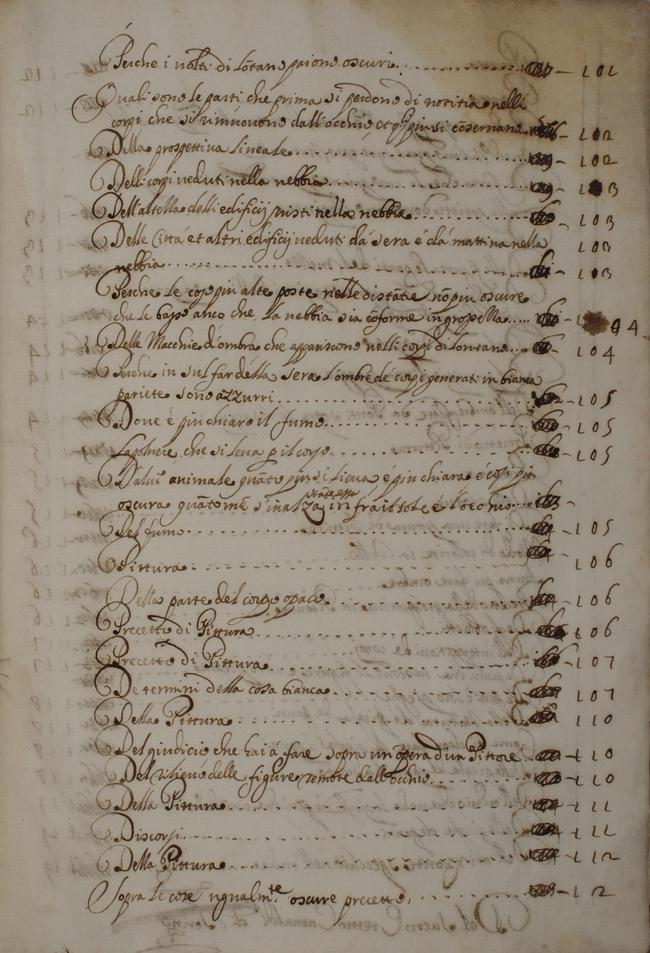 Perche i volti di lontano paiono oscuri - 101
Quali sono le parti che prima si perdono di notitia nelli
corpi che si rimuovono dall'occhio, et q̃ più si cõservano - 102
Della prospettiva lineale - 102
Delli corpi veduti nella nebbia - 103
Dell'altezza delli edificij visti nella nebbia - 103
Delle Città et altri edificij veduti dà sera è dà mattina nella 103
nebbia - 103
Perche le cose più alte poste nelle distãtie sõ più oscure
che le basse, anco che la nebbia sia cõforme in grossezza 4
Delle Macchie d'ombra che appariscono nelli corpi di lontano - 104
Perche in sul far della sera l'ombre de corpi generati in bianca
pariete sono azzurri - 105
Dove è più chiaro il fumo - 105
La polvere che si leva p il corso - 105
D'alcũ animale quãto più si lieva è più chiara è così più
oscura quãto mẽ s'inalza, in fra il sole è l'occhio
Del fumo - 105
Pittura - 106
Della parte del corpo opaco - 106
Precetto di Pittura - 106
Precetto di Pittura - 107
De termini della cosa bianca - 107
Della Pittura - 110
Del giudicio che hai à fare sopra un'opera d'un Pittore - 110
Del rilievo delle figure remote dall'occhio - 110
Della Pittura - 111
Discorsi - 111
Della Pittura - 112
Sopra le cose ugualmte oscure precetto - 112